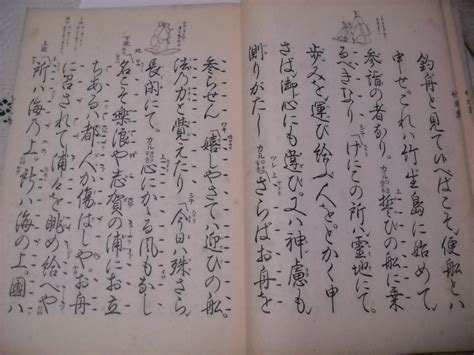 釣舟と見ていへばこそ、便船とハ
申せ。これハ竹生島に始めて、
参詣の者なり。誓ひの船に乗
るべきなり。げにこの所ハ霊地にて。
歩みを運び給ふ人を、とかく申
さば、御心にも違ひ。又ハ神慮も、
測りがたし。さらばお舟を
参らせん。嬉しやさてハ迎ひの船、
法の力と覚えたり。今日ハ殊さら
長閑にて。心にかゝる風もなし
名こそ楽浪や志賀の浦にお立
ちあるハ都人か傷はしや。お舟
に召されて浦々を眺め給へや
所ハ海の上。所ハ海の上、國ハ